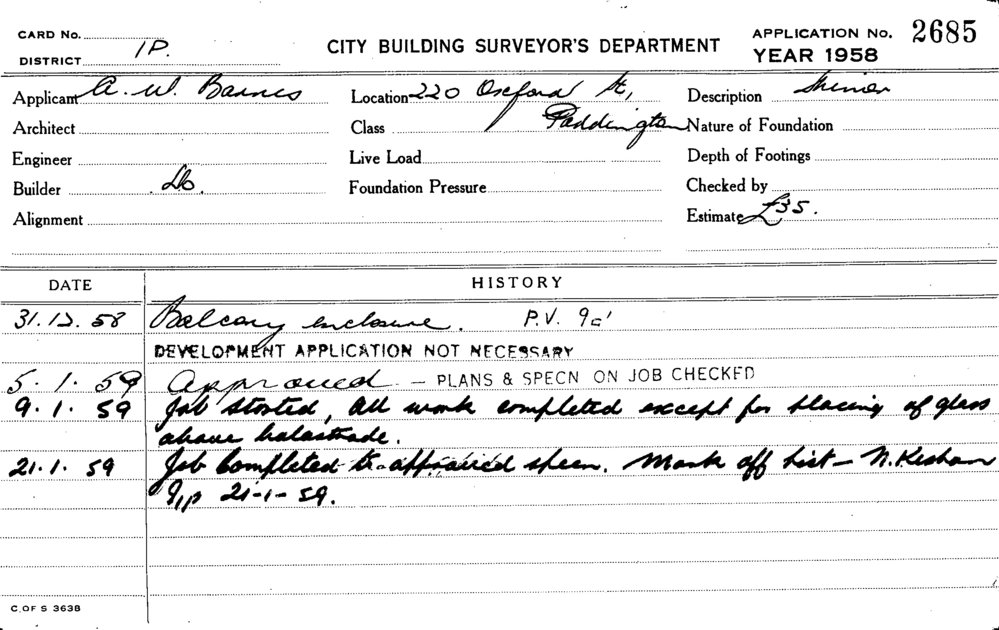 CARD No.
DISTRICT 1P.
CITY BUILDING SURVEYOR'S DEPARTMENT
APPLICATION No. 2685
YEAR 1958
Applicant A. W. Barnes
Location 220 Oxford St,
Description
Architect
Class Paddington
Nature of Foundation
Engineer
Live Load
Depth of Footings
Builder Do.
Foundation Pressure
Checked by
Alignment
Estimate £35.
DATE HISTORY
31.12.58 Balcony enclosure. P.V.
DEVELOPMENT APPLICATION NOT NECESSARY
5.1.59 Approved - PLANS & SPECN ON JOB CHECKED
9.1.59 Job started, all work completed except for placing of glass
above balastrade.
21.1.59 Job Completed to approved specn. Mark off list -
21-1-59.
C OF S 3638